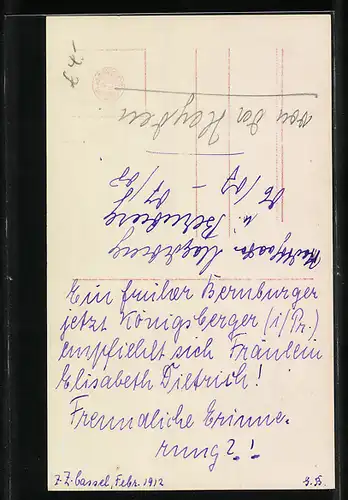 von der Heyden
06/07 – 07/08
u. Bernburg
Magdeburg
Ein früher Bernburger
jetzt Königsberger (i/Pr.)
empfiehlt sich Fräulein
Elisabeth Dietrich!
Freundliche Erinne-
rung? !
z.Z. Cassel, Febr. 1912